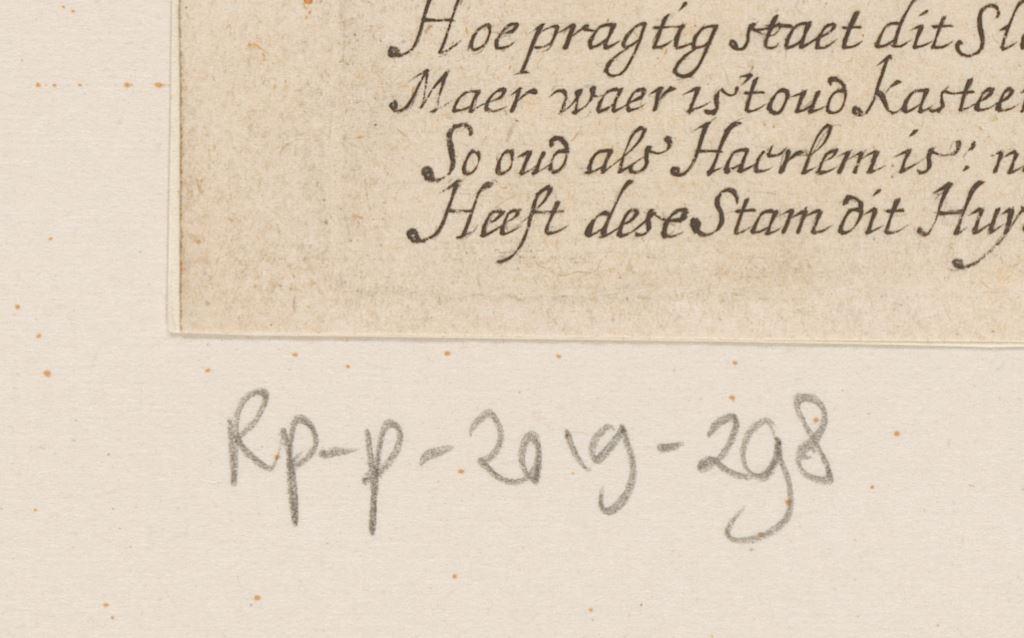 Hoe pragtig staet dit
Maer waer is't oud
So oud als Haerlem is:
Heeft dese Stam dit
Rp-p-2019-298